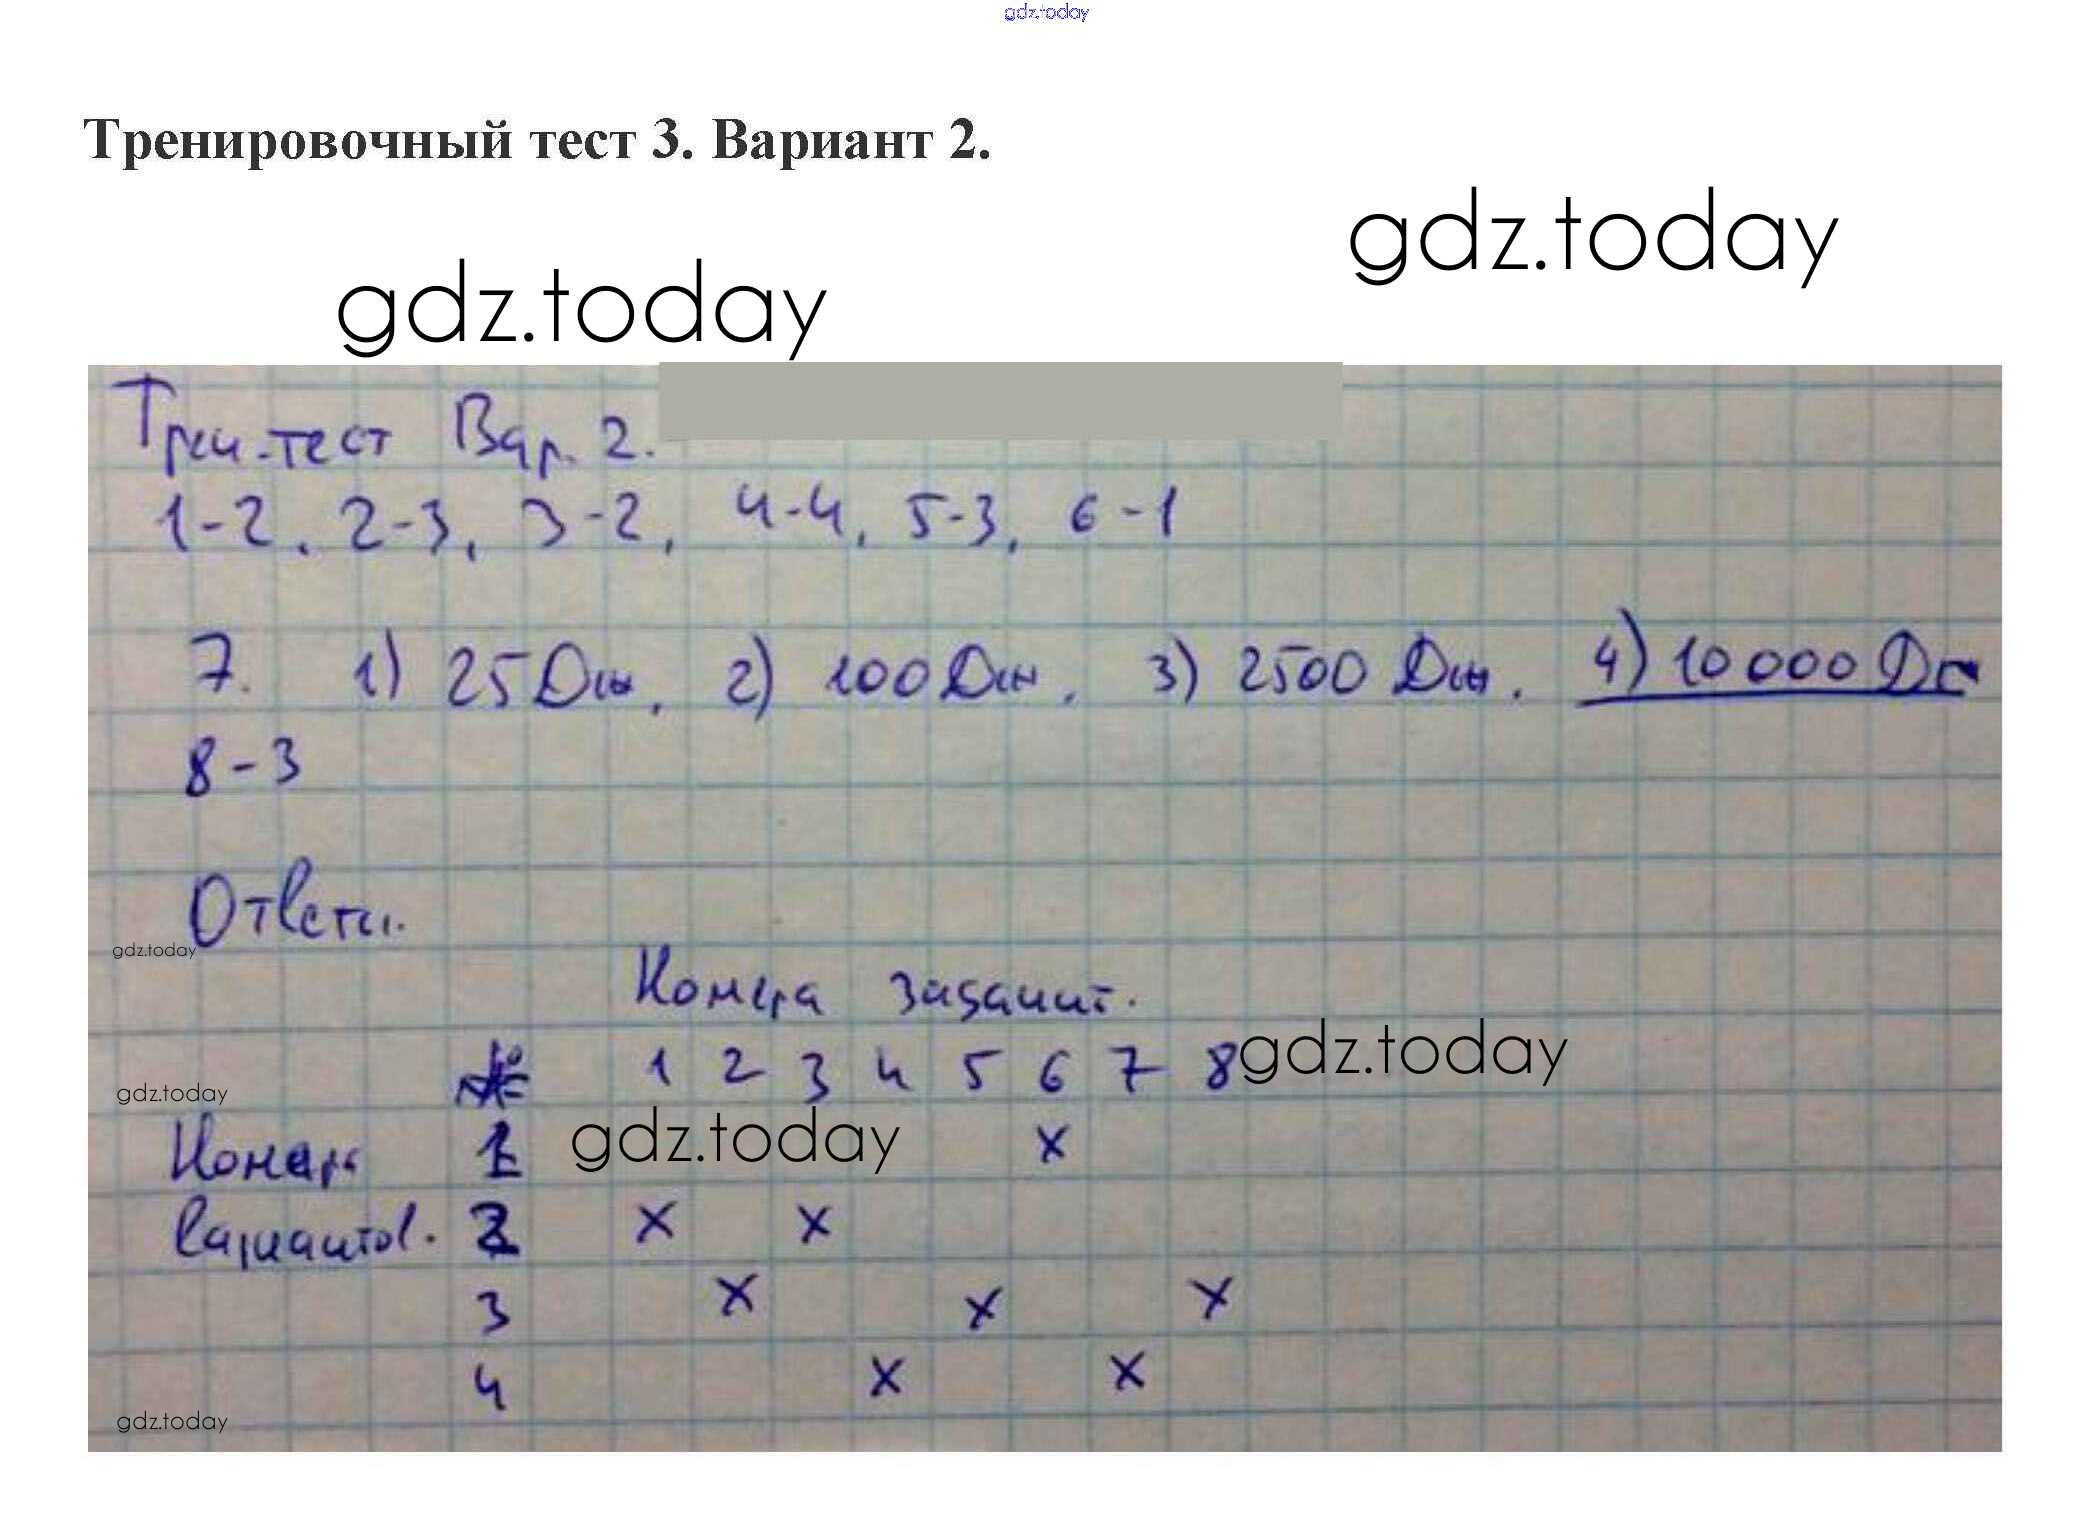 gdz.today
Тренировочный тест 3. Вариант 2.
gdz.today
gdz.today
Трен.тест Вар. 2.
1-2, 2-3, 3-2, 4-4, 5-3, 6-1
7. 1) 25 Дж, 2) 100 Дж, 3) 2500 Дж, 4) 10 000 Дж
8-3
Ответы.
gdz.today
Номера заданий.
№ 1 2 3 4 5 6 7 8
gdz.today
gdz.today
Номера 1 x
gdz.today
вариантов. 2 x x
3 x x x
4 x x
gdz.today